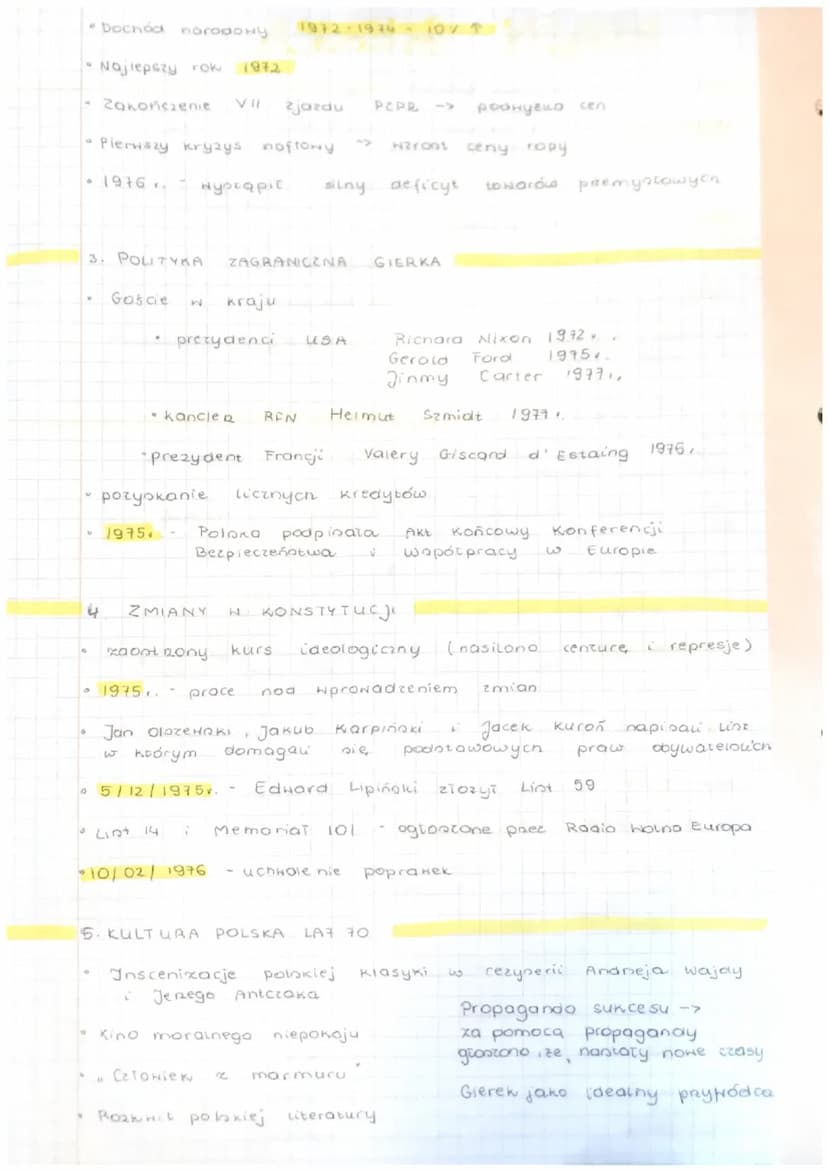 • Dochód narodowy 1972-1974 - 10% ↑
• Najlepszy rok 1972
• Zakończenie VII zjazdu PZPR -> podwyżka cen
• Pierwszy kryzys naftowy -> wzrost ceny ropy
• 1976 r. - wystąpił silny deficyt towarów przemysłowych
3. POLITYKA ZAGRANICZNA GIERKA
• Goście w kraju
• prezydenci USA Richard Nixon 1972 r.
Gerald Ford 1975 r.
Jimmy Carter 1977 r.
• kanclerz RFN Helmut Szmidt 1977 r.
• prezydent Francji Valery Giscard d'Estaing 1976 r.
• pozyskanie licznych kredytów
• 1975r. - Polska podpisała Akt Końcowy Konferencji
Bezpieczeństwa i Współpracy w Europie
4 ZMIANY W KONSTYTUCJI
• zaostrzony kurs ideologiczny (nasilono cenzurę i represje)
• 1975 r. - prace nad wprowadzeniem zmian
• Jan Olszewski, Jakub Karpiński i Jacek Kuroń napisali list
w którym domagali się podstawowych praw obywatelskich
• 5/12/1975r. - Edward Lipiński złożył List 59
• List 14 i Memoriał 101 - ogłoszone przez Radio Wolna Europa
• 10/02/1976 - uchwalenie poprawek
5. KULTURA POLSKA LAT 70
• Inscenizacje polskiej klasyki w reżyserii Andrzeja Wajdy
i Jerzego Antczaka
• Kino moralnego niepokoju
• "Człowiek z marmuru"
• Rozkwit polskiej literatury
Propaganda sukcesu ->
za pomocą propagandy
głoszono, że nastały nowe czasy
Gierek jako idealny przywódca